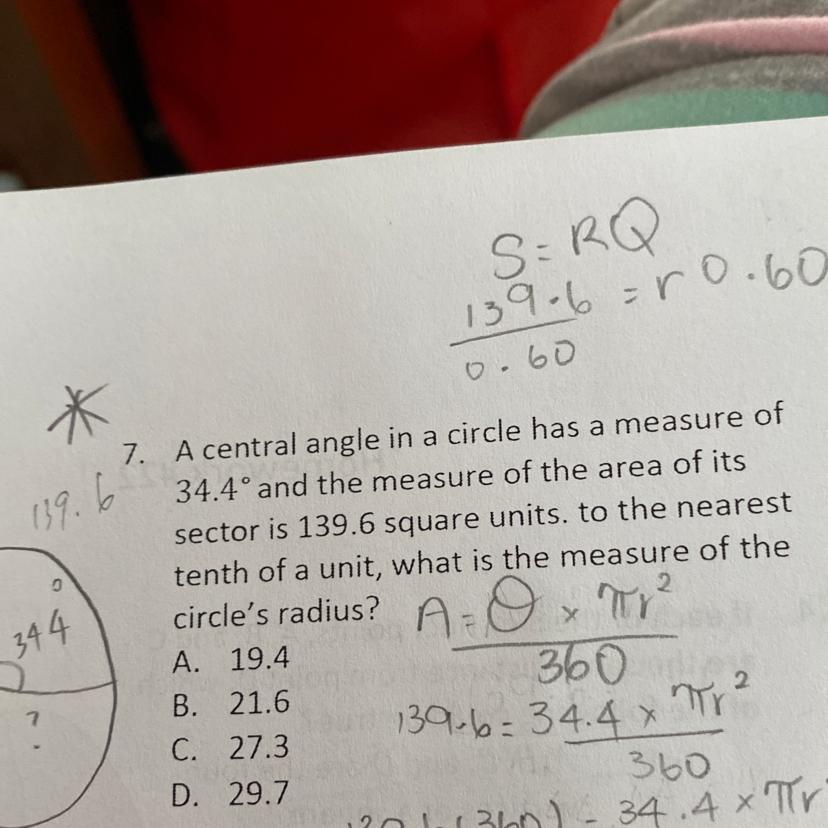 S = RQ
139.6 = r 0.60
0.60
139.6
7. A central angle in a circle has a measure of
34.4° and the measure of the area of its
sector is 139.6 square units. to the nearest
tenth of a unit, what is the measure of the
circle's radius?
A = θ × πr²
360
A. 19.4
B. 21.6
C. 27.3
D. 29.7
139.6 = 34.4 × πr²
360
34.4 × πr
344
?